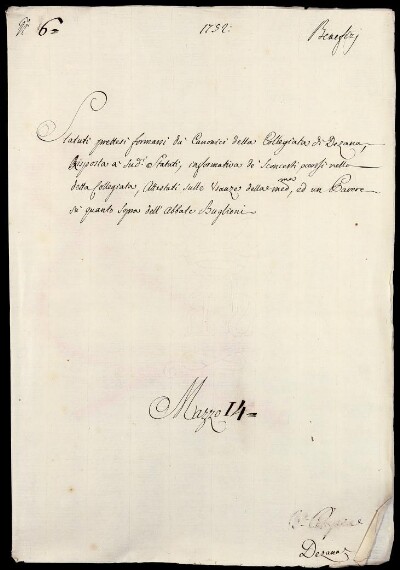 N.º 6=
1752:
Benefizj
Statuti prettesi formarsi da' Canonici della Collegiata di Dezana,
Risposta a' sud.ti Statuti, informativa de' sconcerti occorsi nella
detta Collegiata, Attestati sulle Usanze della med.ma, ed un Parere
su' quanto sopra dell' Abbate Buglioni
Mazzo 14=
Dezana